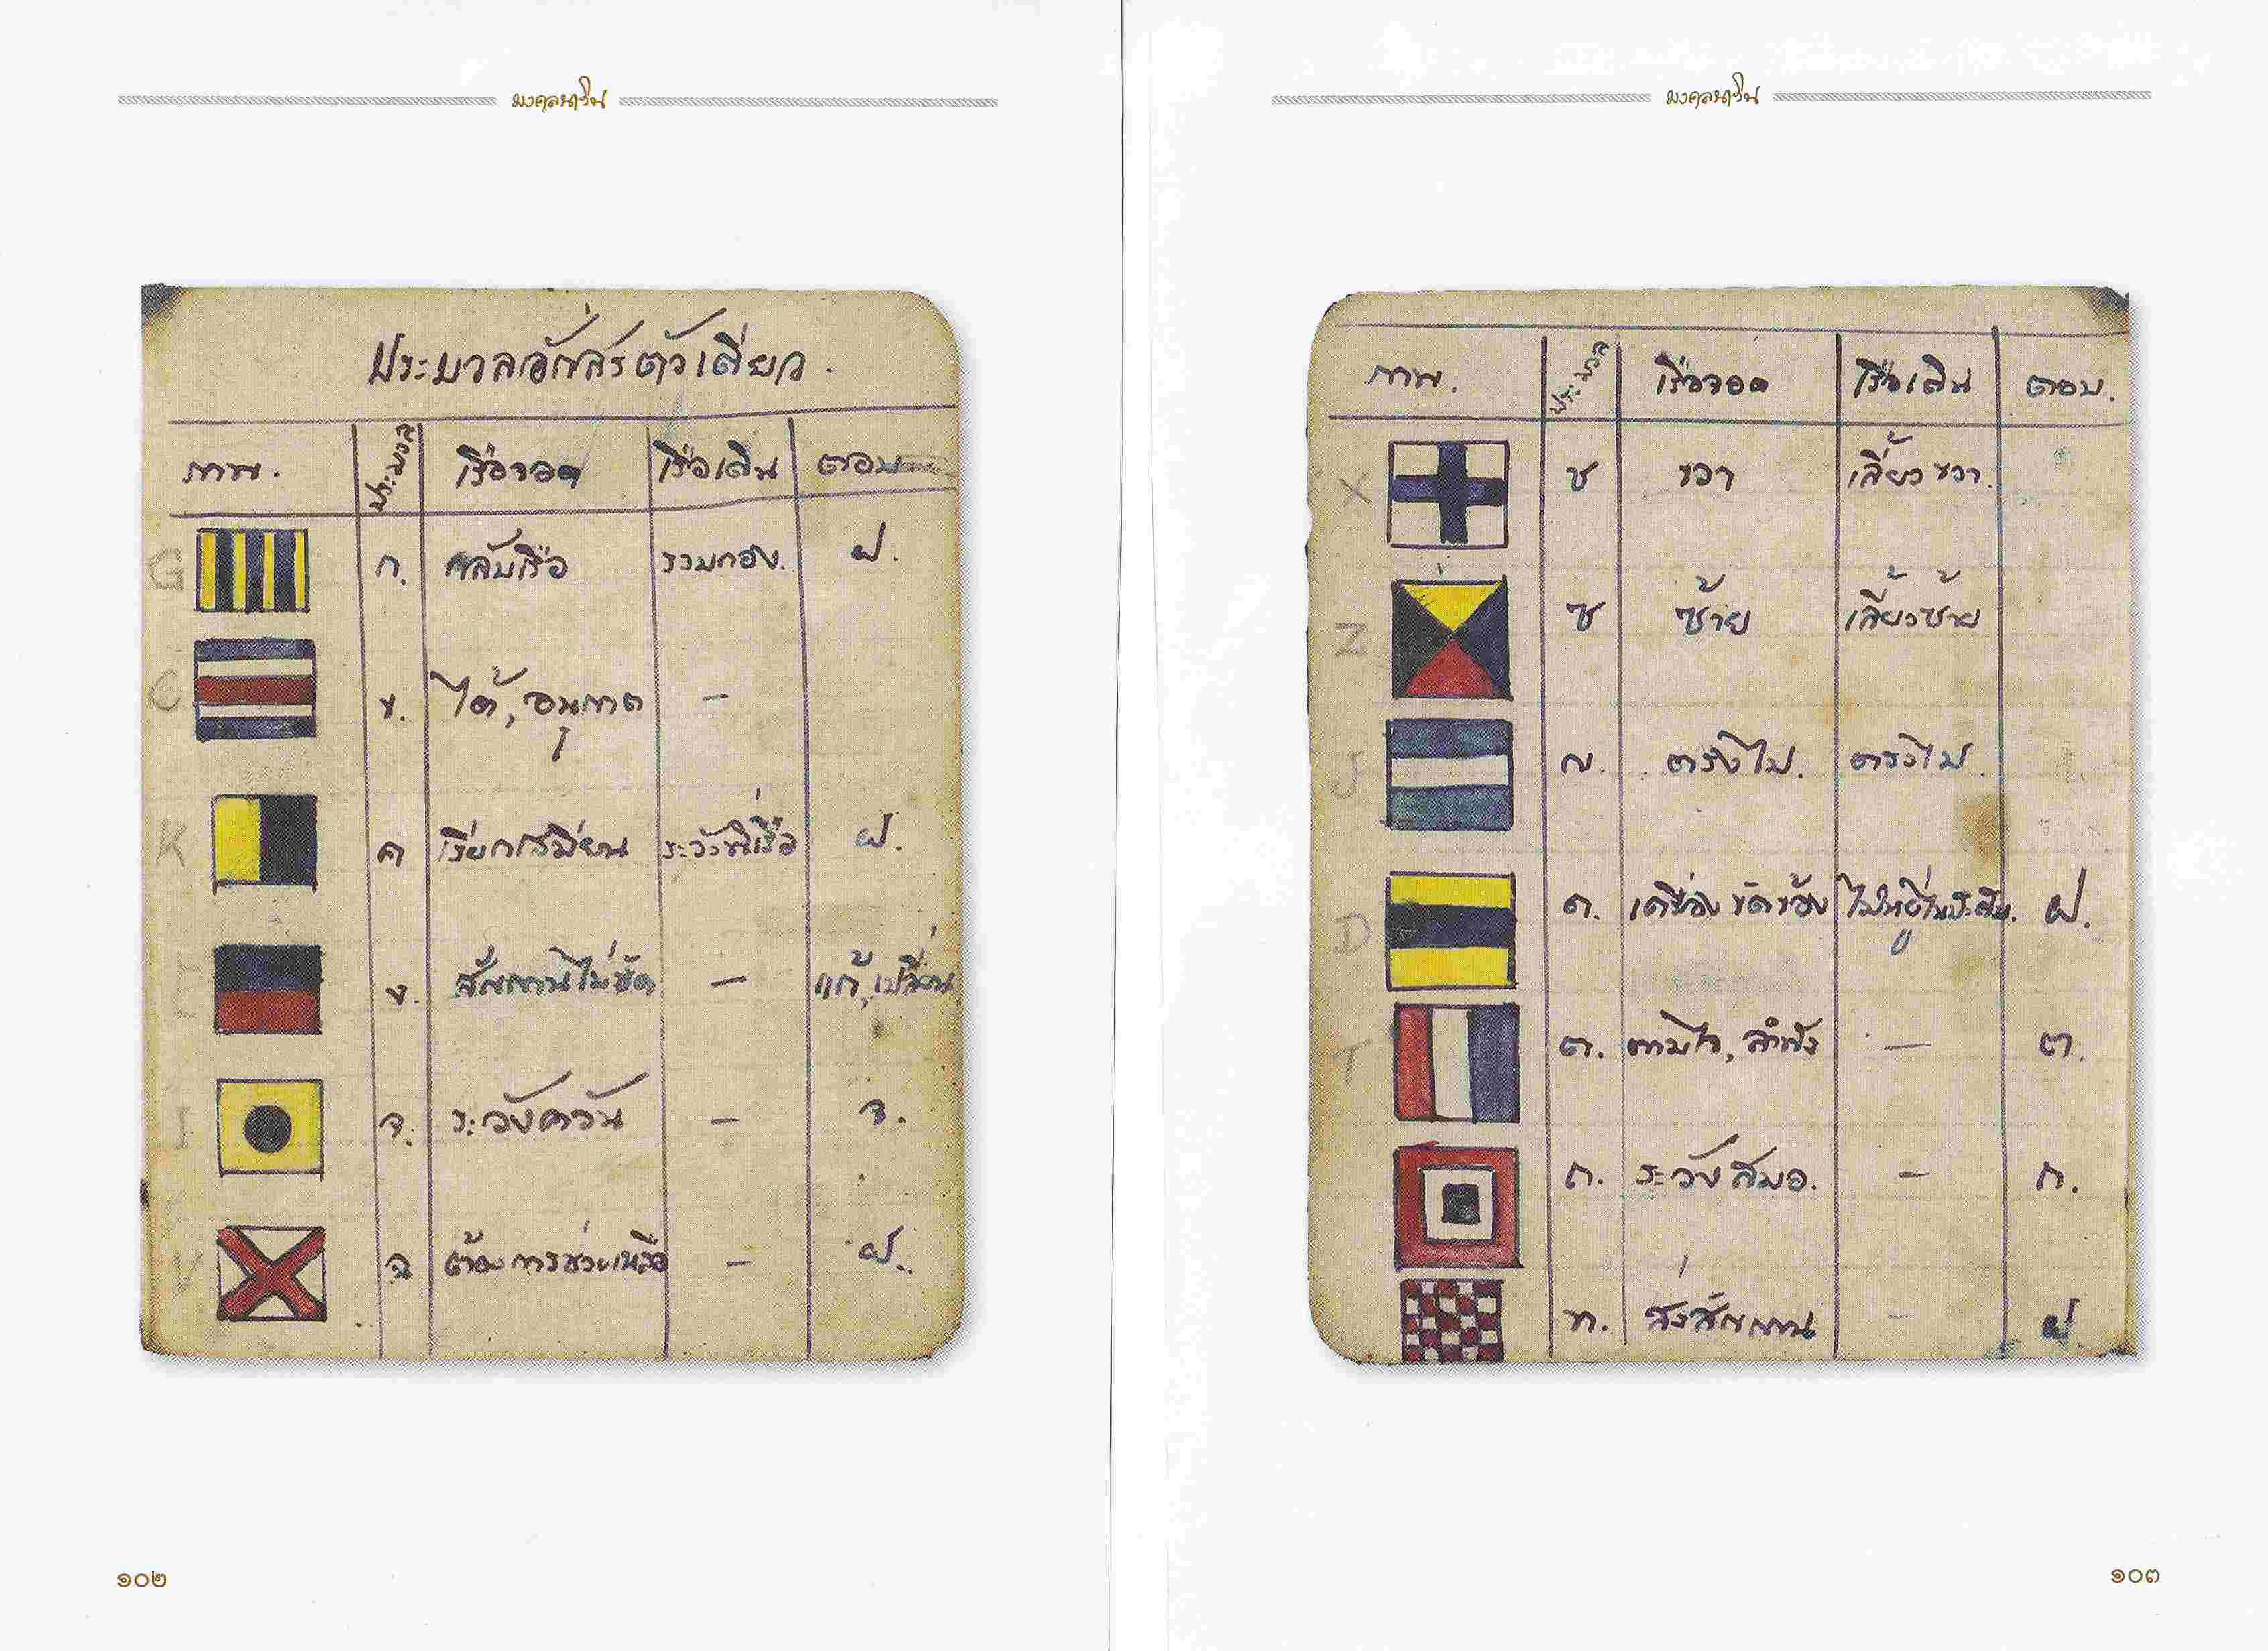 มงคลนาวิน
ประมวลอักษรตัวเดียว.
ภาพ. ประมวล เรือจอด เรือเดิน ตอบ
G ก. กลับเรือ รวมกอง. ฝ.
C ข. ได้, อนุญาต —
K ค เรียกเสมียน ระวังสีเรือ ฝ.
E ง. สัญญาณไม่ชัด — แก้, เปลี่ยน
I จ. ระวังควัน — จ.
V ฉ ต้องการช่วยเหลือ — ฝ.
๑๐๒
มงคลนาวิน
ภาพ. ประมวล เรือจอด เรือเดิน ตอบ.
X ช ขวา เลี้ยวขวา.
Z ซ ซ้าย เลี้ยวซ้าย
J ญ. ตรงไป. ตรงไป.
D ด. เครื่องขัดข้อง ฝ.
T ต. ตามใจ, ลำพัง — ต.
ถ. ระวังสมอ. — ถ.
ท. ส่งสัญญาณ — ฝ.
๑๐๓